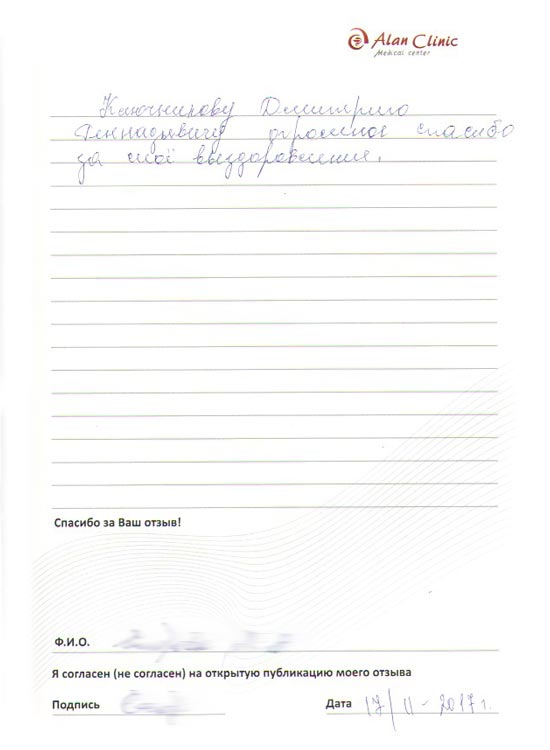 Alan Clinic
Medical center
Ключникову Дмитрию
Геннадьевичу огромное спасибо
за моё выздоровления.
Спасибо за Ваш отзыв!
Ф.И.О.
Я согласен (не согласен) на открытую публикацию моего отзыва
Подпись Дата 17/11-2017г.